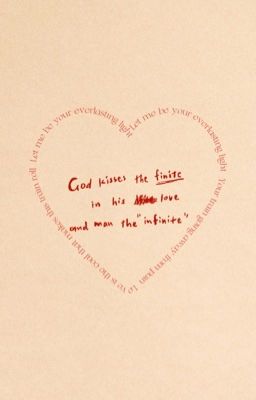 Let me be your everlasting light
Let me be your everlasting light
Your train going away from pain
Lo ve is the coal that makes this train roll
God kisses the finite
in his love
and man the "infinite"